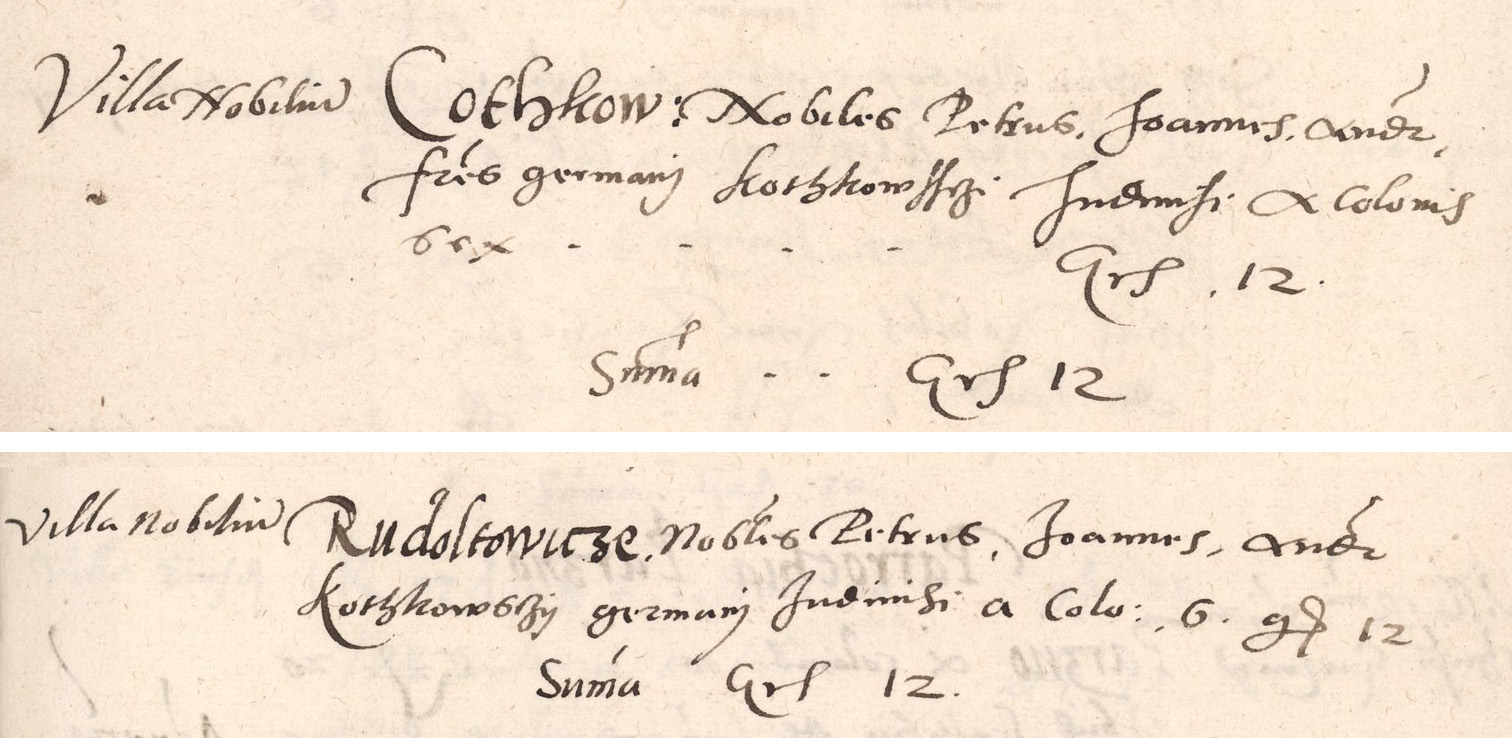 Villa Nobiliũ Cothkow: Nobiles Petrus, Joannes, Andr̃,
fr̃es germanij Kothkowssczi Indiuisi A Colonis
sex - - - - Grs . 12.
Sum̃a - - Grs 12
Villa Nobiliũ Rudoltowicze, Nobl̃es Petrus, Joannes, Andr̃
Kothkowsczij germanij Indiuisi a Colo: 6. gr 12
Sum̃a Grs 12.